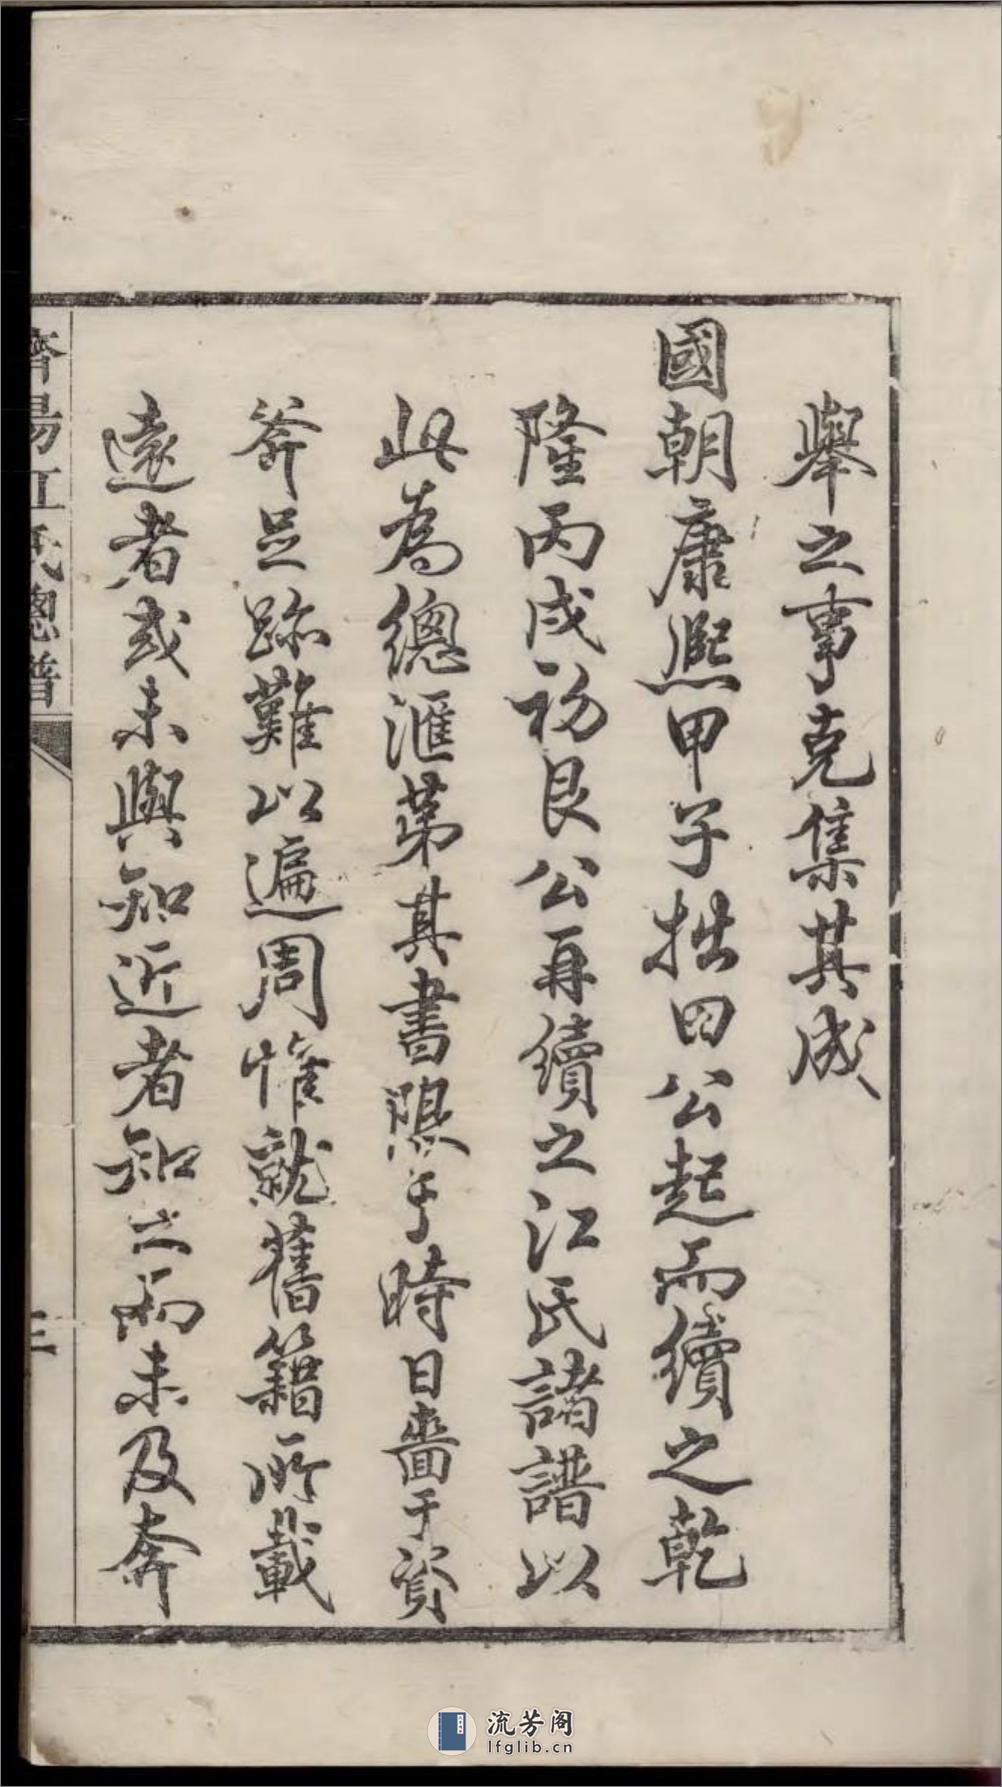 舉之事克集其成
國朝康熙甲子拙田公起而續之乾
隆丙戌初艮公再續之江氏諸譜以
此為總滙第其書限于時日嗇于資
斧足跡難以遍周惟就舊籍所載
遠者或未與知近者知之而未及奔
濟陽江氏總譜
三
流芳阁
lfglib.cn